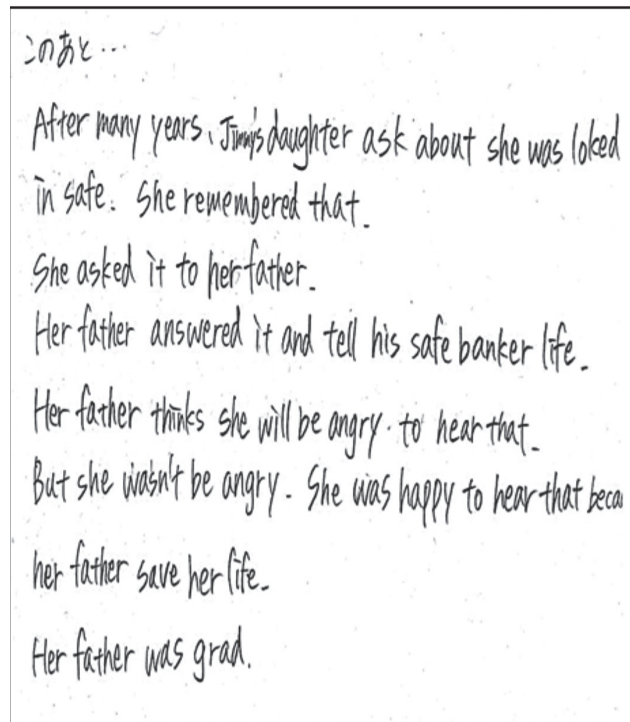 このあと…
After many years, Jimmy's daughter ask about she was loked
in safe. She remembered that.
She asked it to her father.
Her father answered it and tell his safe banker life.
Her father thinks she will be angry. to hear that.
But she wasn't be angry. She was happy to hear that beca
her father save her life.
Her father was grad.